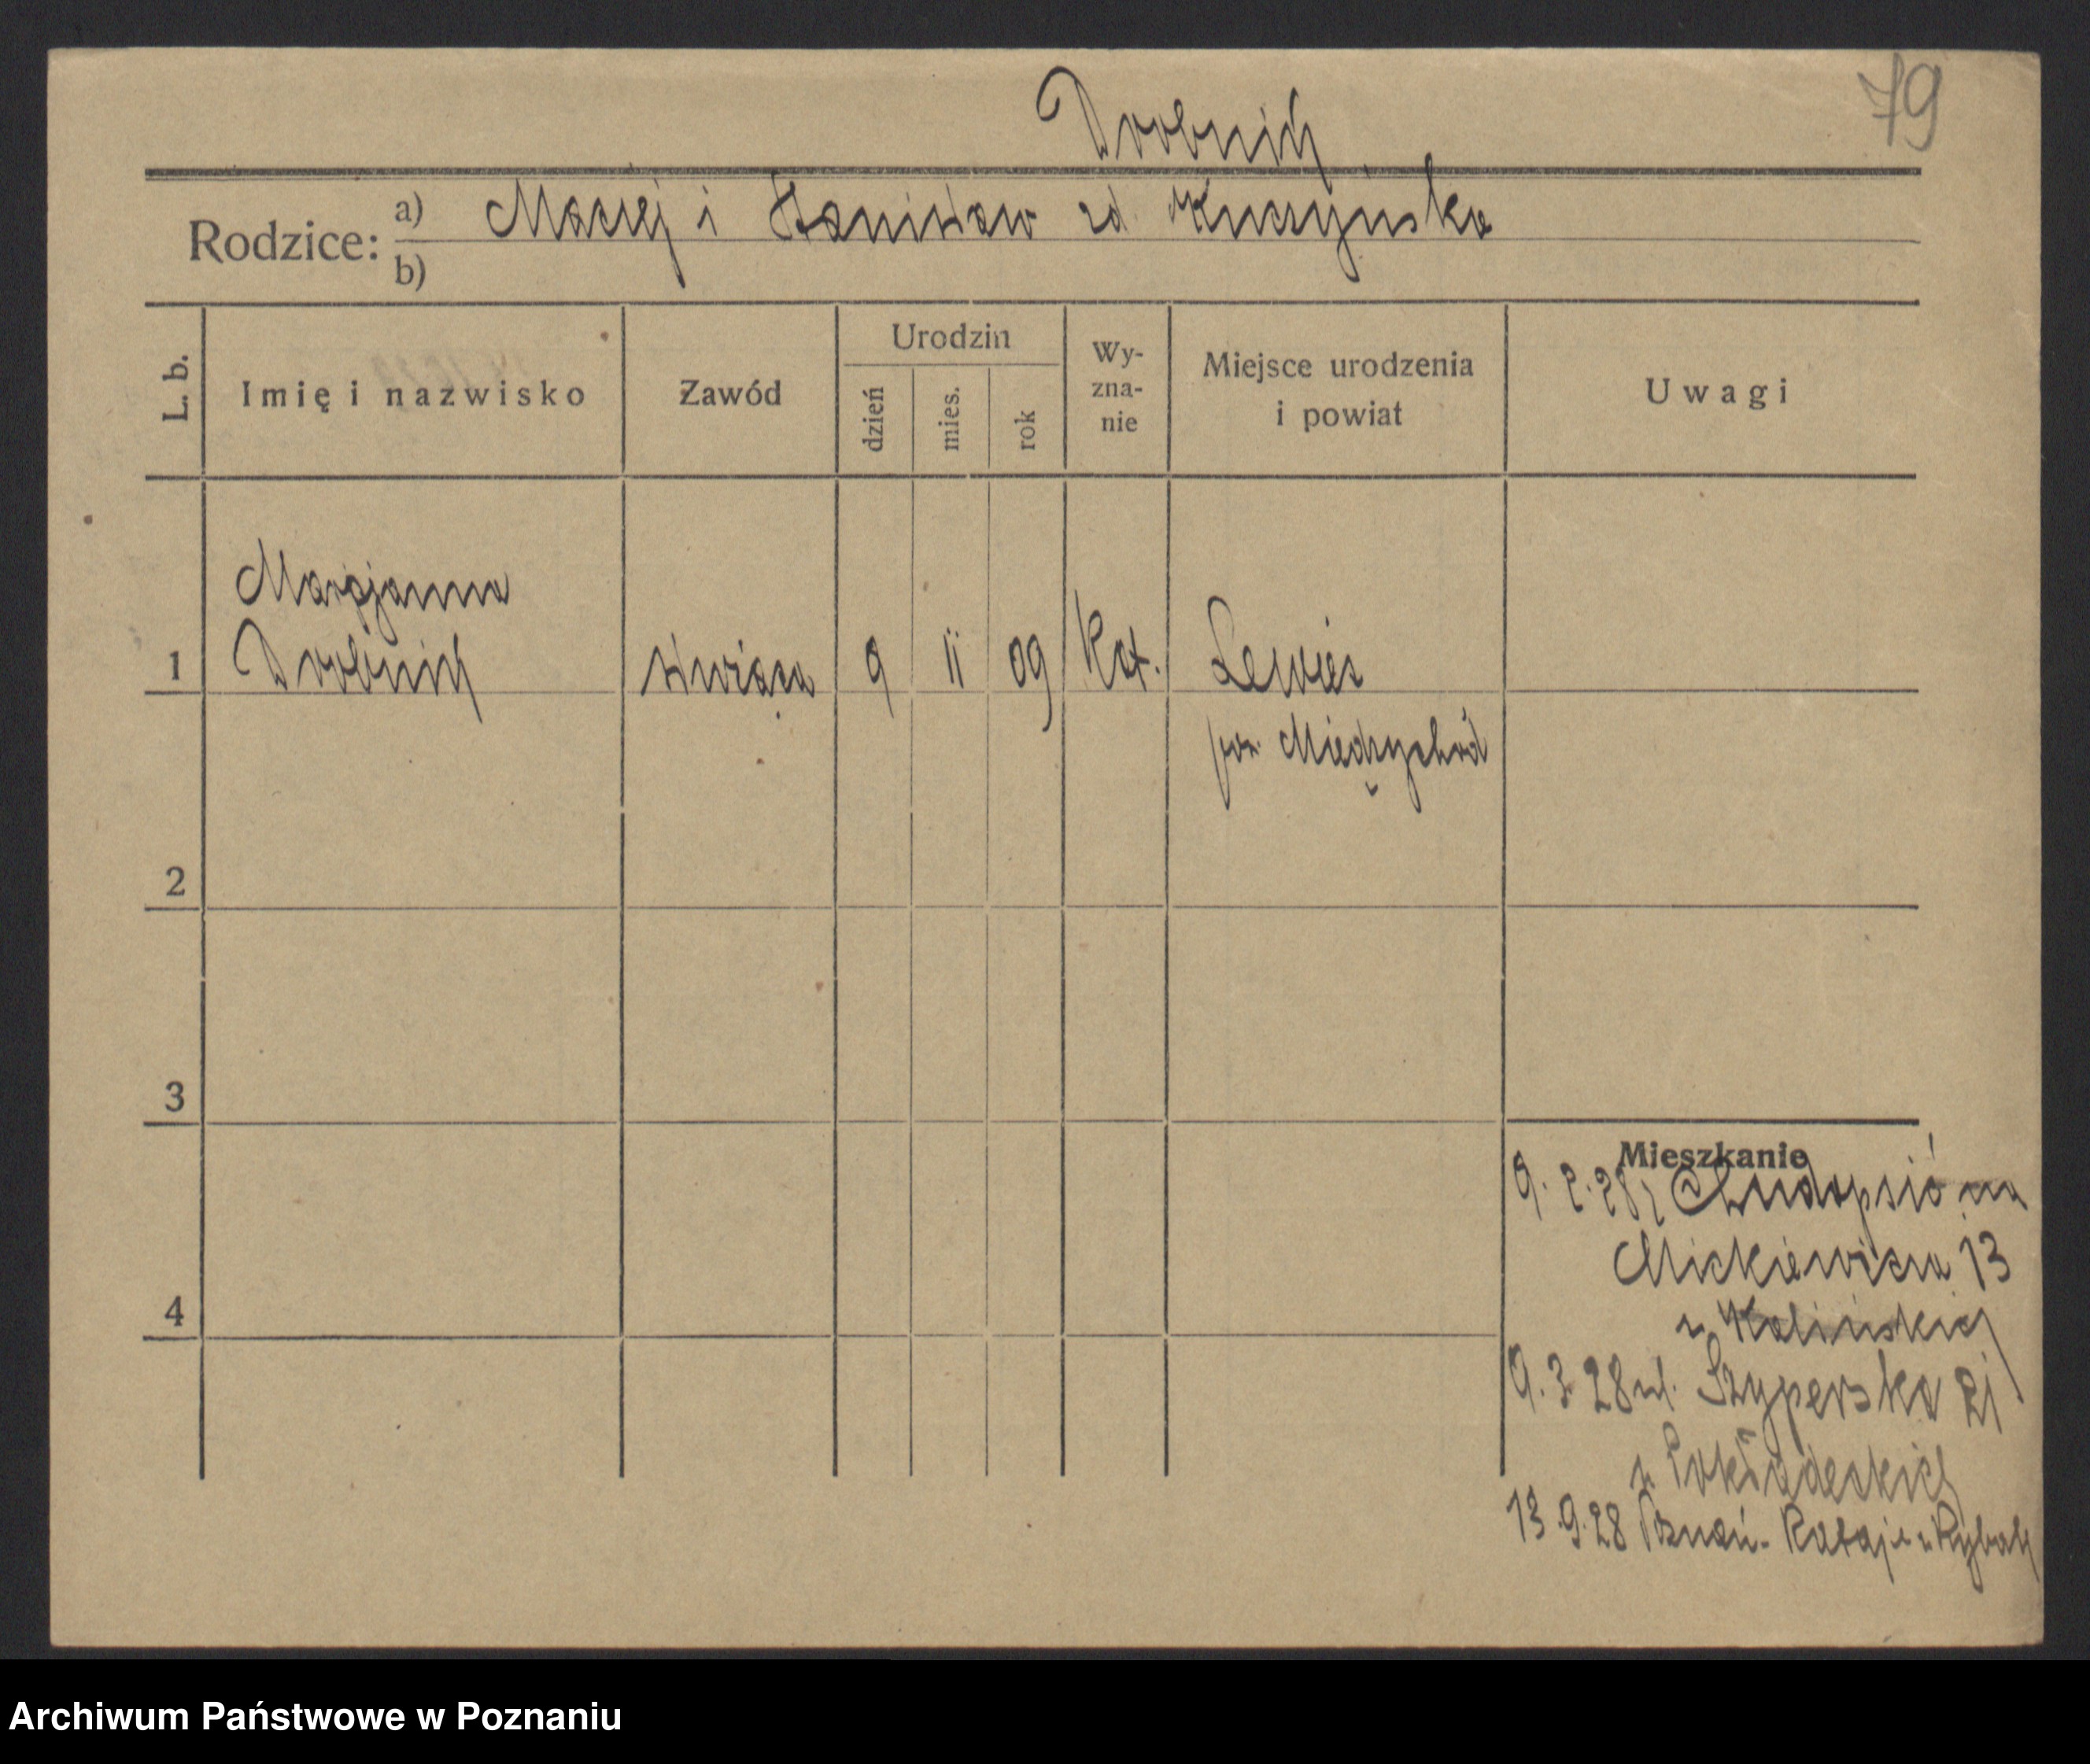 79
Drobnich
Rodzice: a) Maciej i Stanisław zd. Kuczyńska
b)
L. b.
Imię i nazwisko
Zawód
Urodzin
dzień
mies.
rok
Wy-
zna-
nie
Miejsce urodzenia
i powiat
Uwagi
Marjanna
1 Drobnich służąca 9 II 09 Kat. Lewicz
pow. Międzychód
2
3
4
Mieszkanie
9. 2. 28 z na
Mickiewicza 13
u Kalińskich
9. 3. 28 ul. Szyperska 21
u
13. 9. 28 Poznań - Rataje u
Archiwum Państwowe w Poznaniu